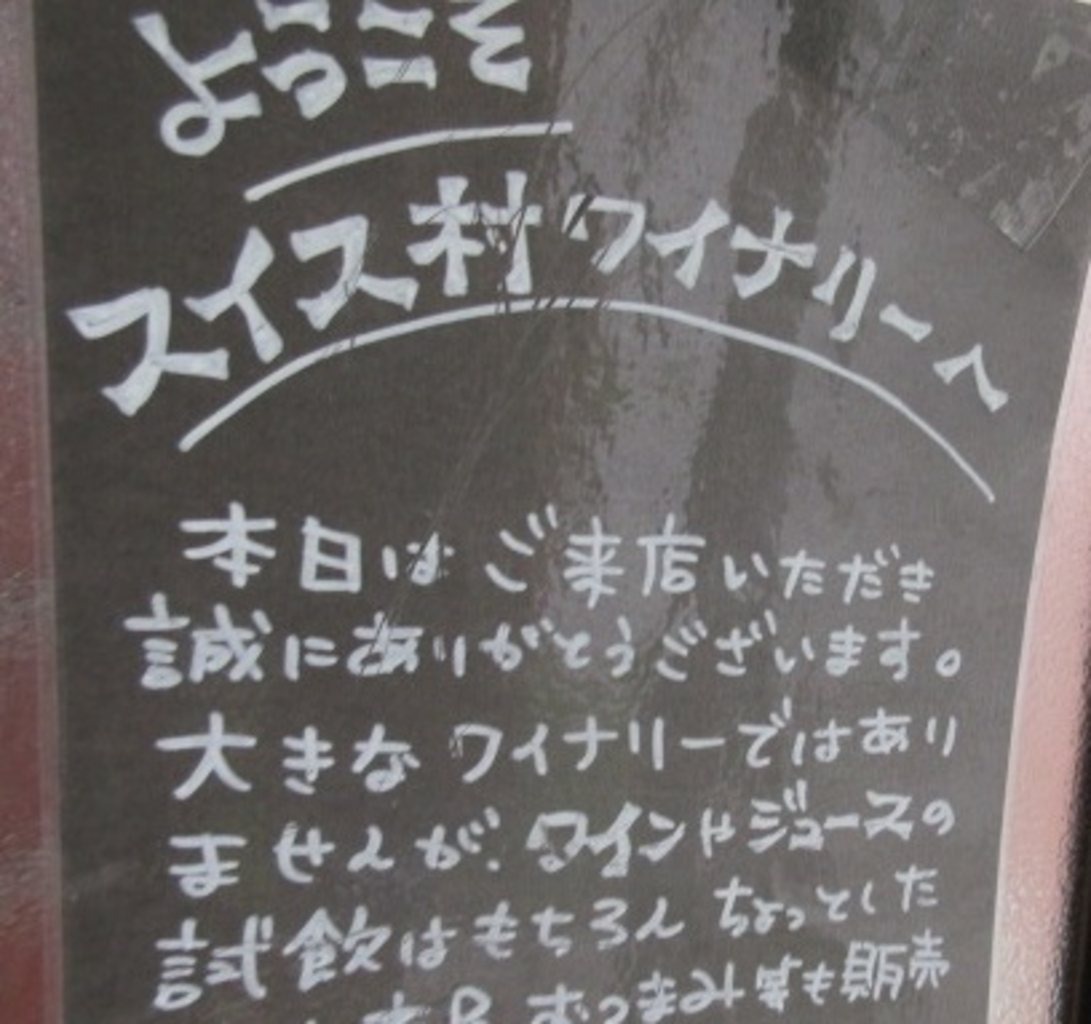 ようこそ
スイス村ワイナリーへ
本日はご来店いただき
誠にありがとうございます。
大きなワイナリーではあり
ませんが、ワインやジュースの
試飲はもちろん ちょっとした
おつまみ等も販売